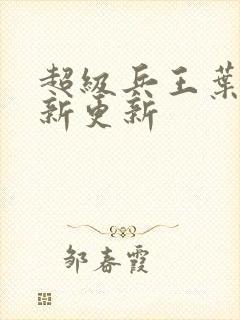 超級兵王葉
新更新
邹春霞